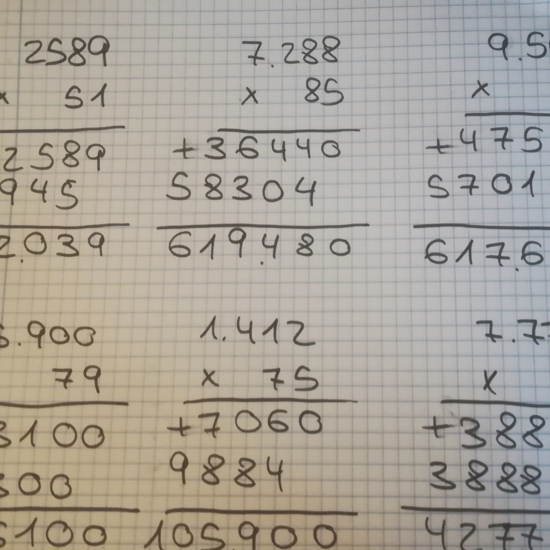 2589 7.288 9.5
x 51 x 85 x
2589 +36440 +475
945 58304 5701
2.039 619.480 617.6
.900 1.412 7.7
79 x 75 x
3100 +7060 +388
300 9884 3888
5100 105900 4277